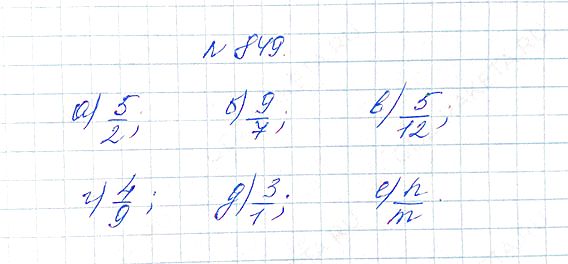 № 849.
а) 5/2; б) 9/7; в) 5/12;
г) 4/9; д) 3/1; е) n/m.